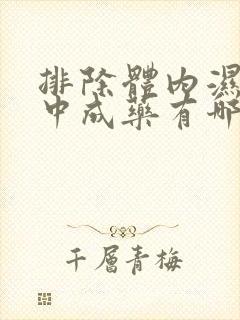 排除體內濕
中成藥有哪
千層青梅